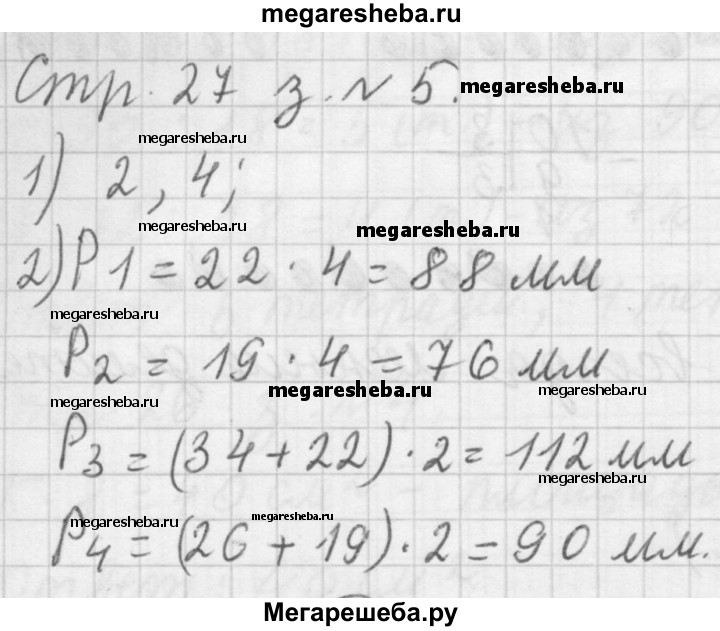 megaresheba.ru
Стр. 27 з. № 5.
megaresheba.ru
megaresheba.ru
1) 2, 4;
megaresheba.ru
megaresheba.ru
2) P1 = 22 · 4 = 88 мм
megaresheba.ru
P2 = 19 · 4 = 76 мм
megaresheba.ru
megaresheba.ru
megaresheba.ru
P3 = (34 + 22) · 2 = 112 мм
megaresheba.ru
megaresheba.ru
megaresheba.ru
P4 = (26 + 19) · 2 = 90 мм.
Мегарешеба.ру